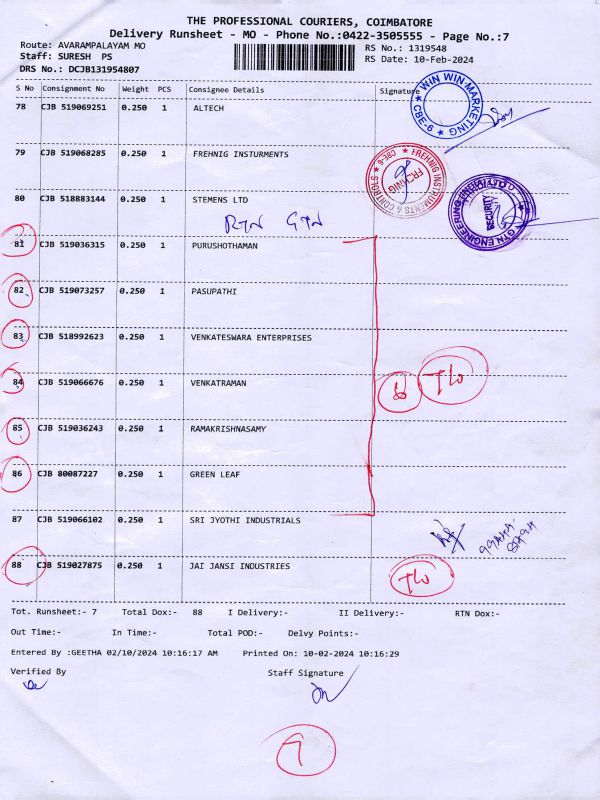 THE PROFESSIONAL COURIERS, COIMBATORE
Delivery Runsheet - MO - Phone No.:0422-3505555 - Page No.:7
Route: AVARAMPALAYAM MO RS No.: 1319548
Staff: SURESH PS RS Date: 10-Feb-2024
DRS No.: DCJB131954807
S No Consignment No Weight PCS Consignee Details Signature
78 CJB 519069251 0.250 1 ALTECH
WIN WIN MARKETING ★ CBE-6 ★
79 CJB 519068285 0.250 1 FREHNIG INSTURMENTS
FREHNIG INSTRUMENTS & CONTROLS ★ CBE-6 ★
FREHNIG
80 CJB 518883144 0.250 1 STEMENS LTD
RTN GTN
GTN ENGINEERING (INDIA) LTD
SECURITY
81 CJB 519036315 0.250 1 PURUSHOTHAMAN
82 CJB 519073257 0.250 1 PASUPATHI
83 CJB 518992623 0.250 1 VENKATESWARA ENTERPRISES
84 CJB 519066676 0.250 1 VENKATRAMAN
T/o
85 CJB 519036243 0.250 1 RAMAKRISHNASAMY
86 CJB 80087227 0.250 1 GREEN LEAF
87 CJB 519066102 0.250 1 SRI JYOTHI INDUSTRIALS
88 CJB 519027875 0.250 1 JAI JANSI INDUSTRIES
T/o
Tot. Runsheet:- 7 Total Dox:- 88 I Delivery:- II Delivery:- RTN Dox:-
Out Time:- In Time:- Total POD:- Delvy Points:-
Entered By :GEETHA 02/10/2024 10:16:17 AM Printed On: 10-02-2024 10:16:29
Verified By Staff Signature